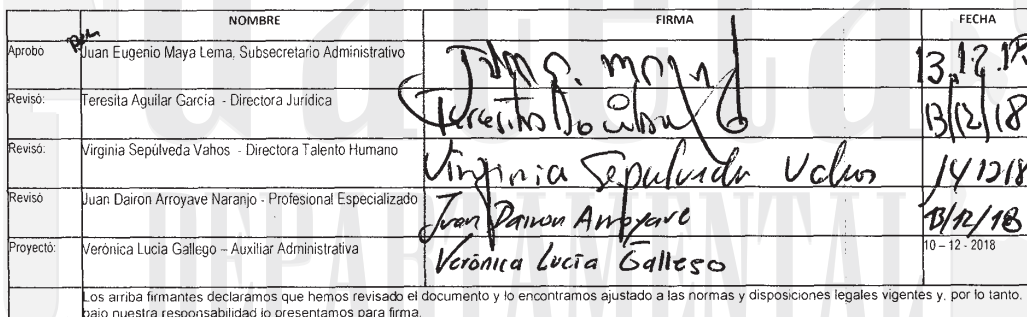 NOMBRE FIRMA FECHA
Aprobó Juan Eugenio Maya Lema, Subsecretario Administrativo 13.12.18
Revisó: Teresita Aguilar García - Directora Jurídica Teresita Aguilar 13/12/18
Revisó: Virginia Sepúlveda Vahos - Directora Talento Humano Virginia Sepulveda Vahos 14 12 18
Revisó Juan Dairon Arroyave Naranjo - Profesional Especializado Juan Dairon Arroyave 13/12/18
Proyectó: Verónica Lucia Gallego – Auxiliar Administrativa Verónica Lucía Gallego 10 – 12 - 2018
Los arriba firmantes declaramos que hemos revisado el documento y lo encontramos ajustado a las normas y disposiciones legales vigentes y, por lo tanto,
bajo nuestra responsabilidad lo presentamos para firma.
DEPARTAMENTAL